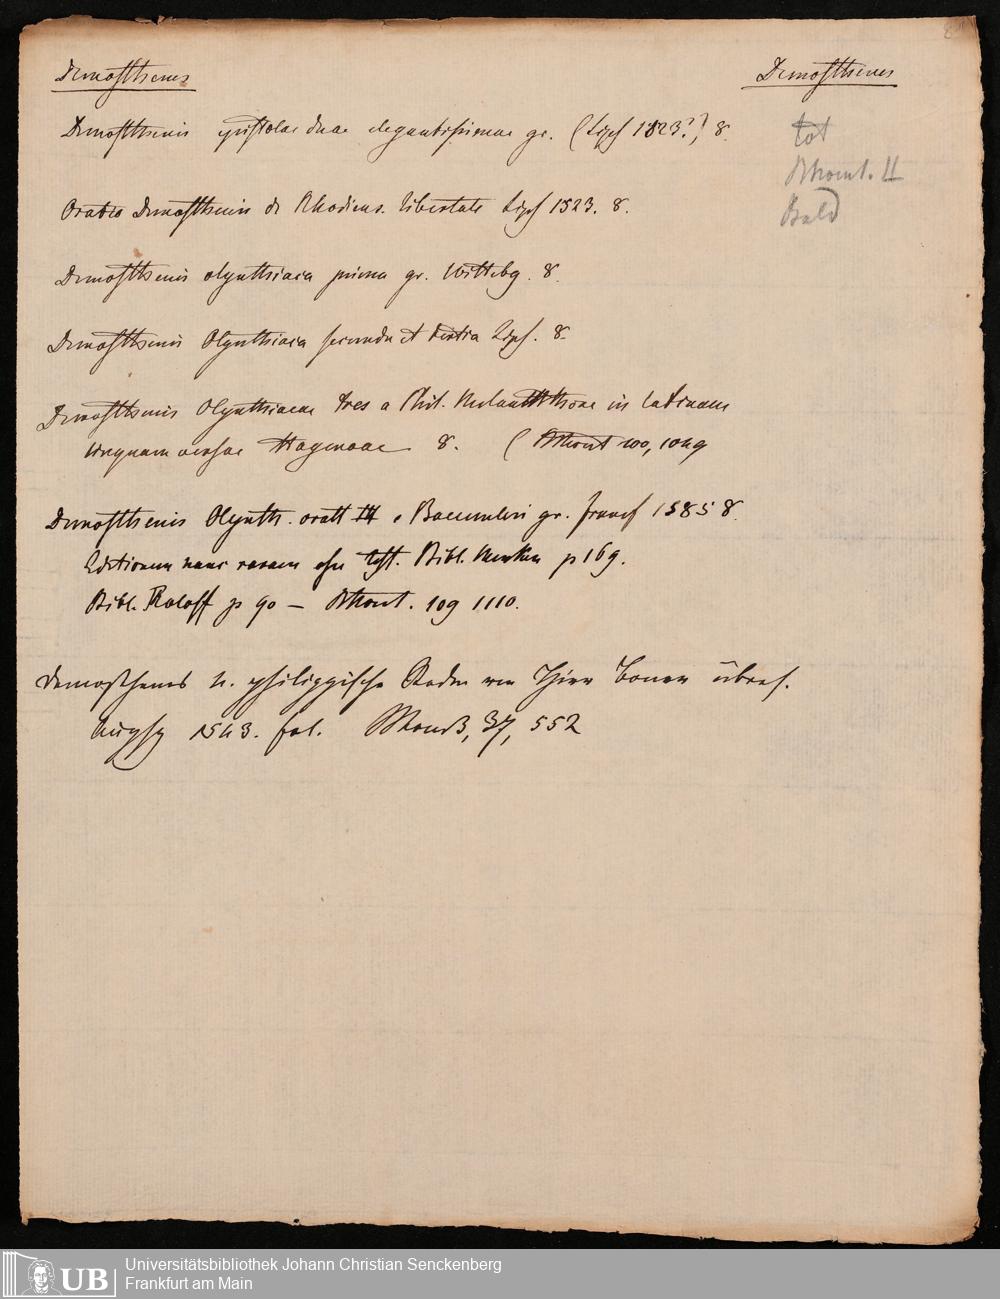 Demosthenes
Demosthenes
Demosthenis epistolae duae elegantissimae gr. (Lips 1523?) 8.
tot
II
Bald
Oratio Demosthenis de Rhodiens. libertate Lips 1523. 8.
Demosthenis olynthiaca prima gr. Wittebg. 8.
Demosthenis Olynthiaca secunda et tertia Lips. 8.
Demosthenis Olynthiacae tres a Phil. Melanthone in latinam
linguam versae Hagenoae 8. 100, 1049
Demosthenis Olynth. oratt III e Baeumleri gr. francf 1585 8.
Editionem hanc raram esse test. Bibl. Menken p 169.
Bibl. Roloff p 90 — 109 1110.
Demosthenes 4. philippische Reden von Hier Boner übers.
Augsp 1543. fol. 37, 552
UB Universitätsbibliothek Johann Christian Senckenberg
Frankfurt am Main